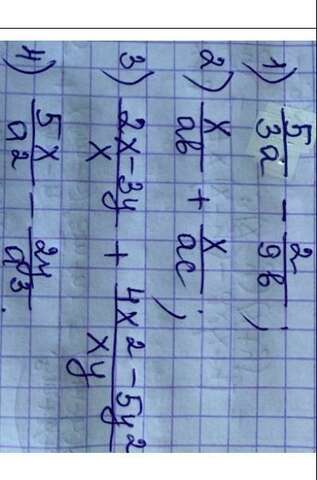 1) 5/3a - 2/9b ;
2) x/ab + x/ac ;
3) 2x-3y/x + 4x2-5y2/xy
4) 5x/a2 - 2y/a3 .